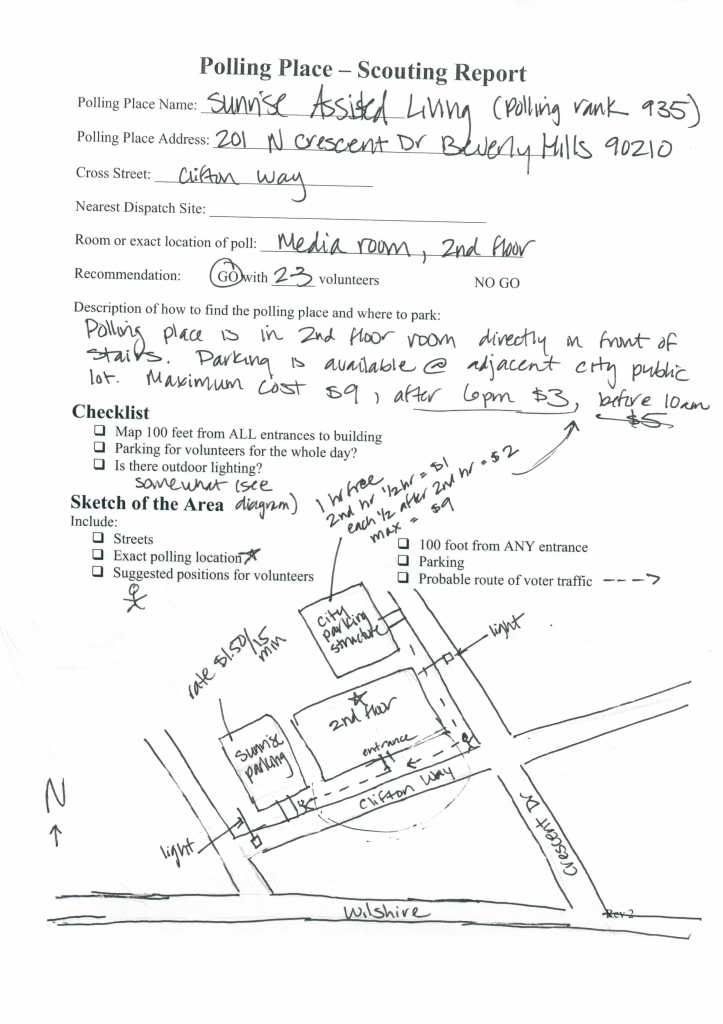 Polling Place – Scouting Report
Polling Place Name: Sunrise Assisted Living (Polling rank 935)
Polling Place Address: 201 N Crescent Dr Beverly Hills 90210
Cross Street: Clifton Way
Nearest Dispatch Site:
Room or exact location of poll: Media room, 2nd floor
Recommendation: GO with 2-3 volunteers NO GO
Description of how to find the polling place and where to park:
Polling place is in 2nd floor room directly in front of
stairs. Parking is available @ adjacent city public
lot. Maximum cost $9, after 6pm $3, before 10am
$5
Checklist
❑ Map 100 feet from ALL entrances to building
❑ Parking for volunteers for the whole day?
❑ Is there outdoor lighting?
somewhat (see
diagram)
Sketch of the Area
Include:
❑ Streets
❑ Exact polling location
❑ Suggested positions for volunteers
❑ 100 foot from ANY entrance
❑ Parking
❑ Probable route of voter traffic
1 hr free
2nd hr 1/2 hr = $1
each 1/2 after 2nd hr = $2
max = $9
city
parking
structure
light
rate $1.50/15
min
2nd floor
sunrise
parking
entrance
Clifton Way
N
light
Crescent Dr
Wilshire
Rev 2